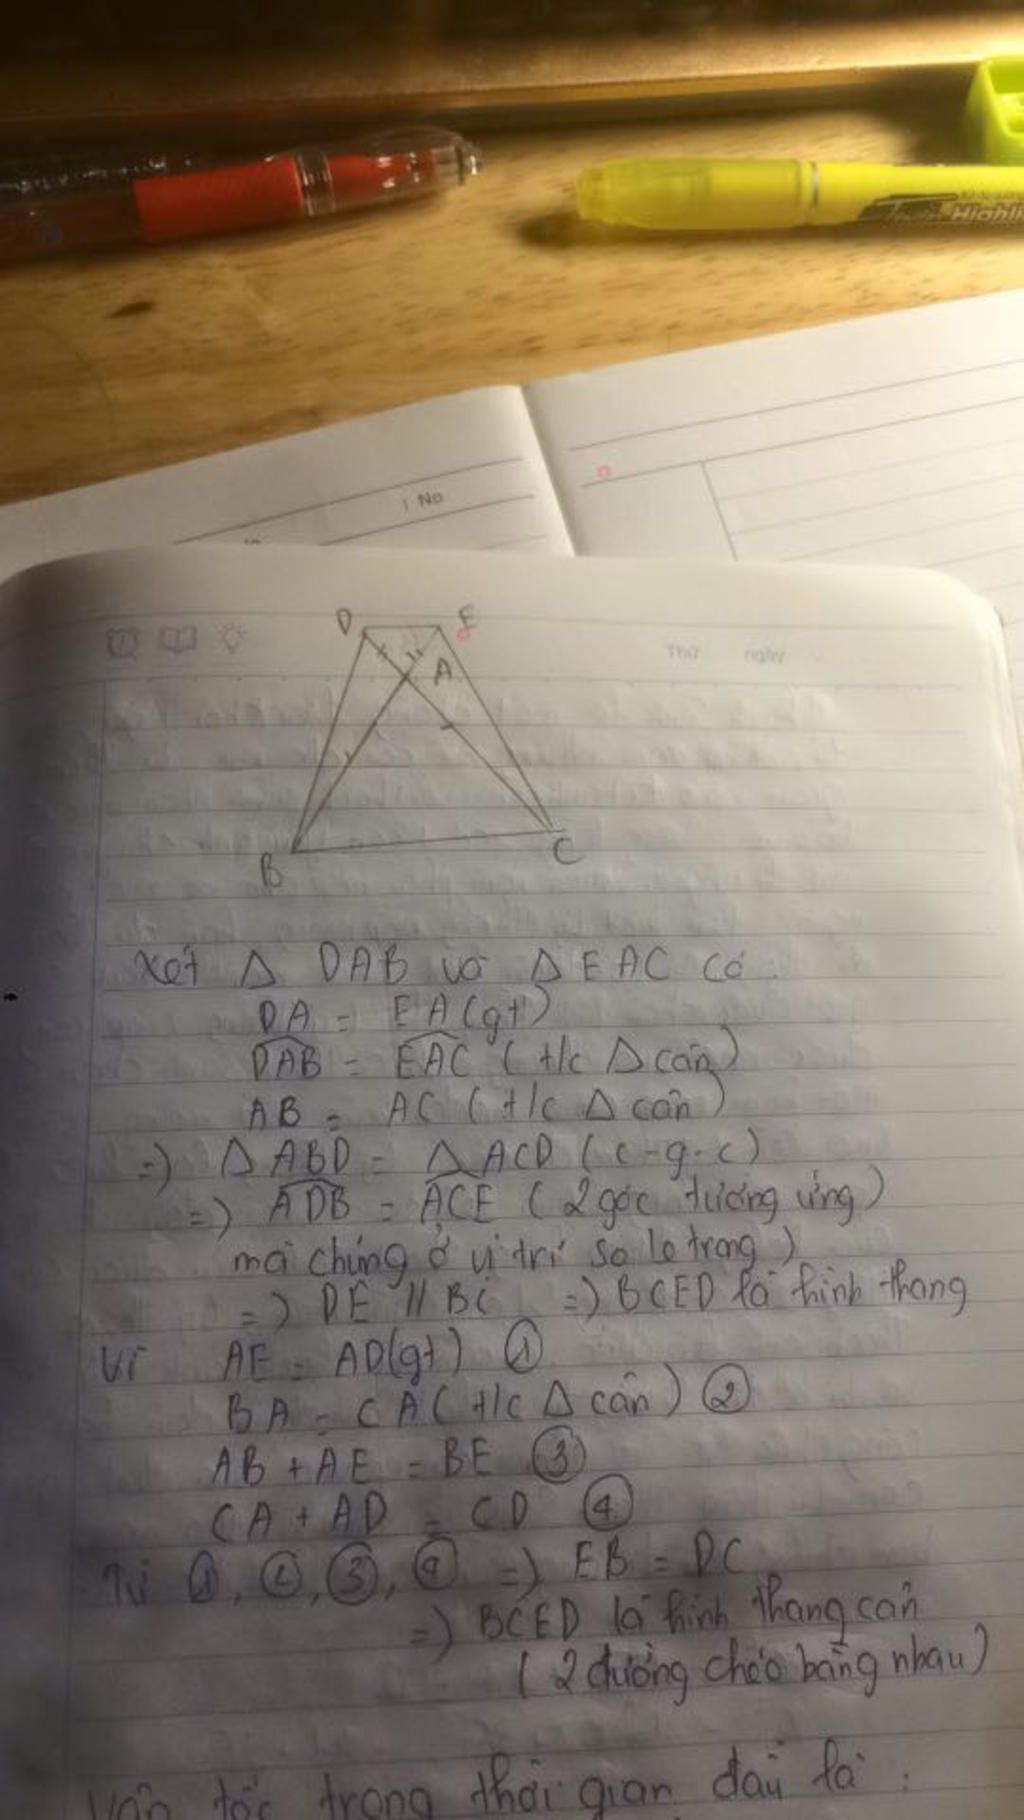 Highli
No
D E
A
B C
Thứ ngày
Xét Δ DAB và Δ EAC có
DA = EA (gt)
DAB = EAC ( t/c Δ cân)
AB = AC ( t/c Δ cân )
=) Δ ABD = Δ ACD ( c - g - c )
=) ADB = ACE ( 2 góc tương ứng )
mà chúng ở vị trí so le trong )
=) DE // BC =) BCED là hình thang
Vì AE = AD (gt) ①
BA = CA ( t/c Δ cân ) ②
AB + AE = BE ③
CA + AD = CD ④
Từ ①, ②, ③, ④ =) EB = DC
=) BCED là hình thang cân
( 2 đường chéo bằng nhau )
Vận tốc trong thời gian đầu là :